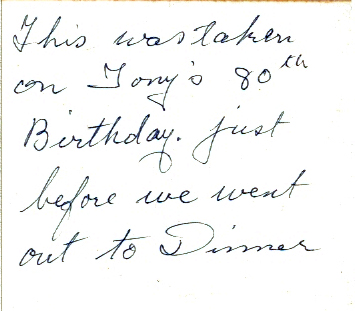 This was taken
on Tony's 80th
Birthday. just
before we went
out to Dinner